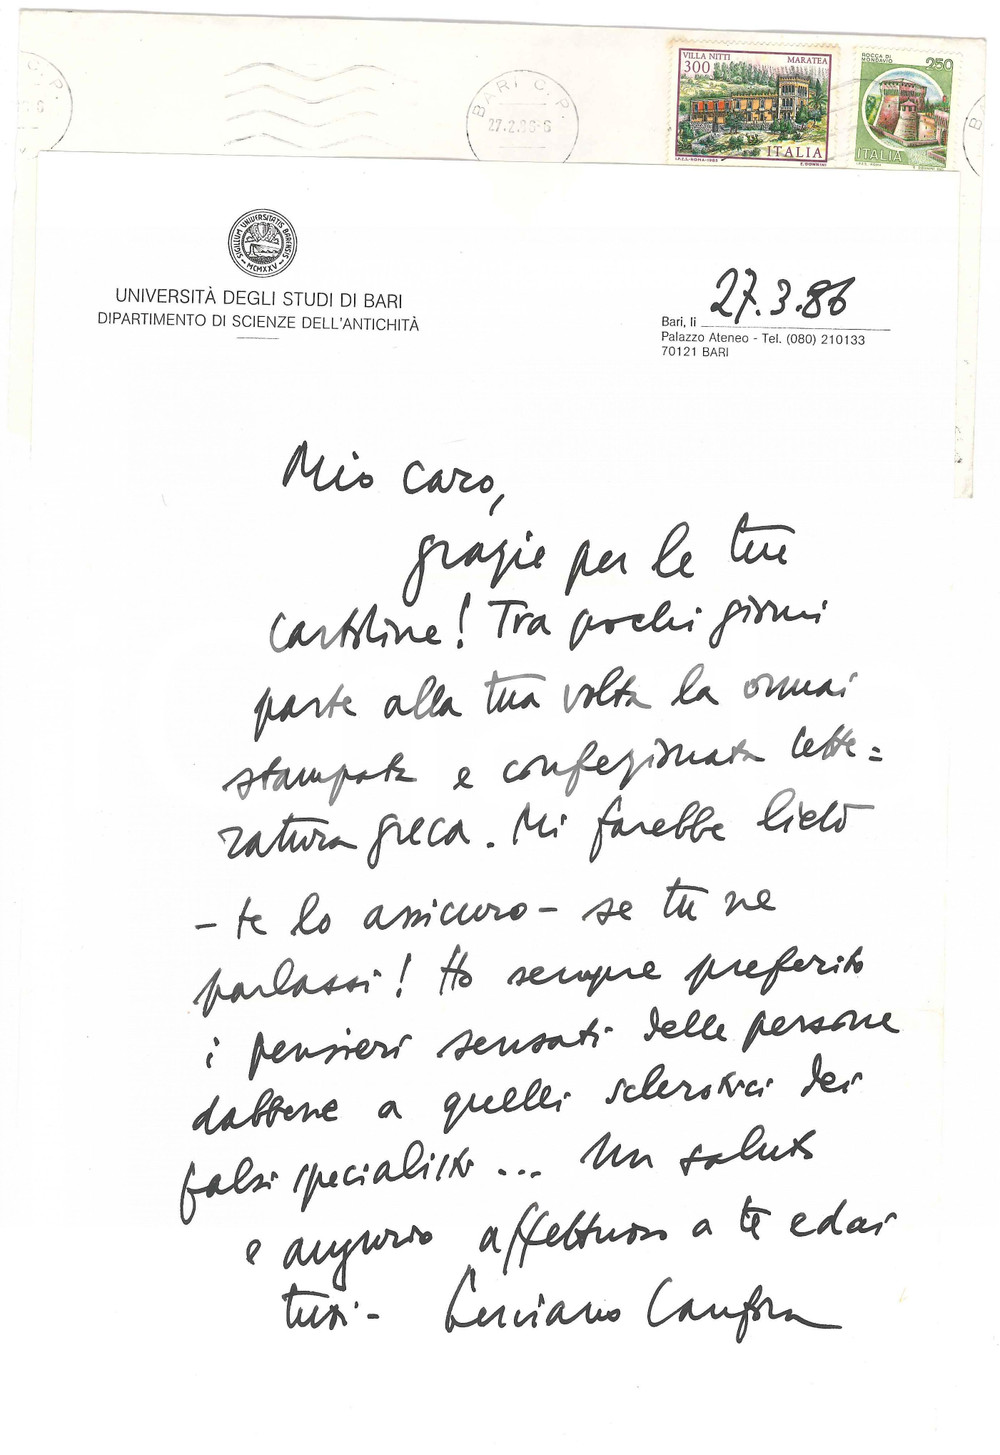 VILLA NITTI
300
MARATEA
ITALIA
ROCCA DI
MONDAVIO
250
ITALIA
BARI C.P.
27.2.86-6
SIGILLUM UNIVERSITATIS BARENSIS
MCMXXV
UNIVERSITÀ DEGLI STUDI DI BARI
DIPARTIMENTO DI SCIENZE DELL'ANTICHITÀ
Bari, li 27.3.86
Palazzo Ateneo - Tel. (080) 210133
70121 BARI
Mio caro,
grazie per le tue
cartoline! Tra pochi giorni
parte alla tua volta la ormai
stampata e confezionata lette=
ratura greca. Mi farebbe lieto
- te lo assicuro - se tu ne
parlassi! Ho sempre preferito
i pensieri sensati delle persone
dabbene a quelli sclerotici dei
falsi specialisti... Un saluto
e augurio affettuoso a te e dai
tuoi - Luciano Canfora